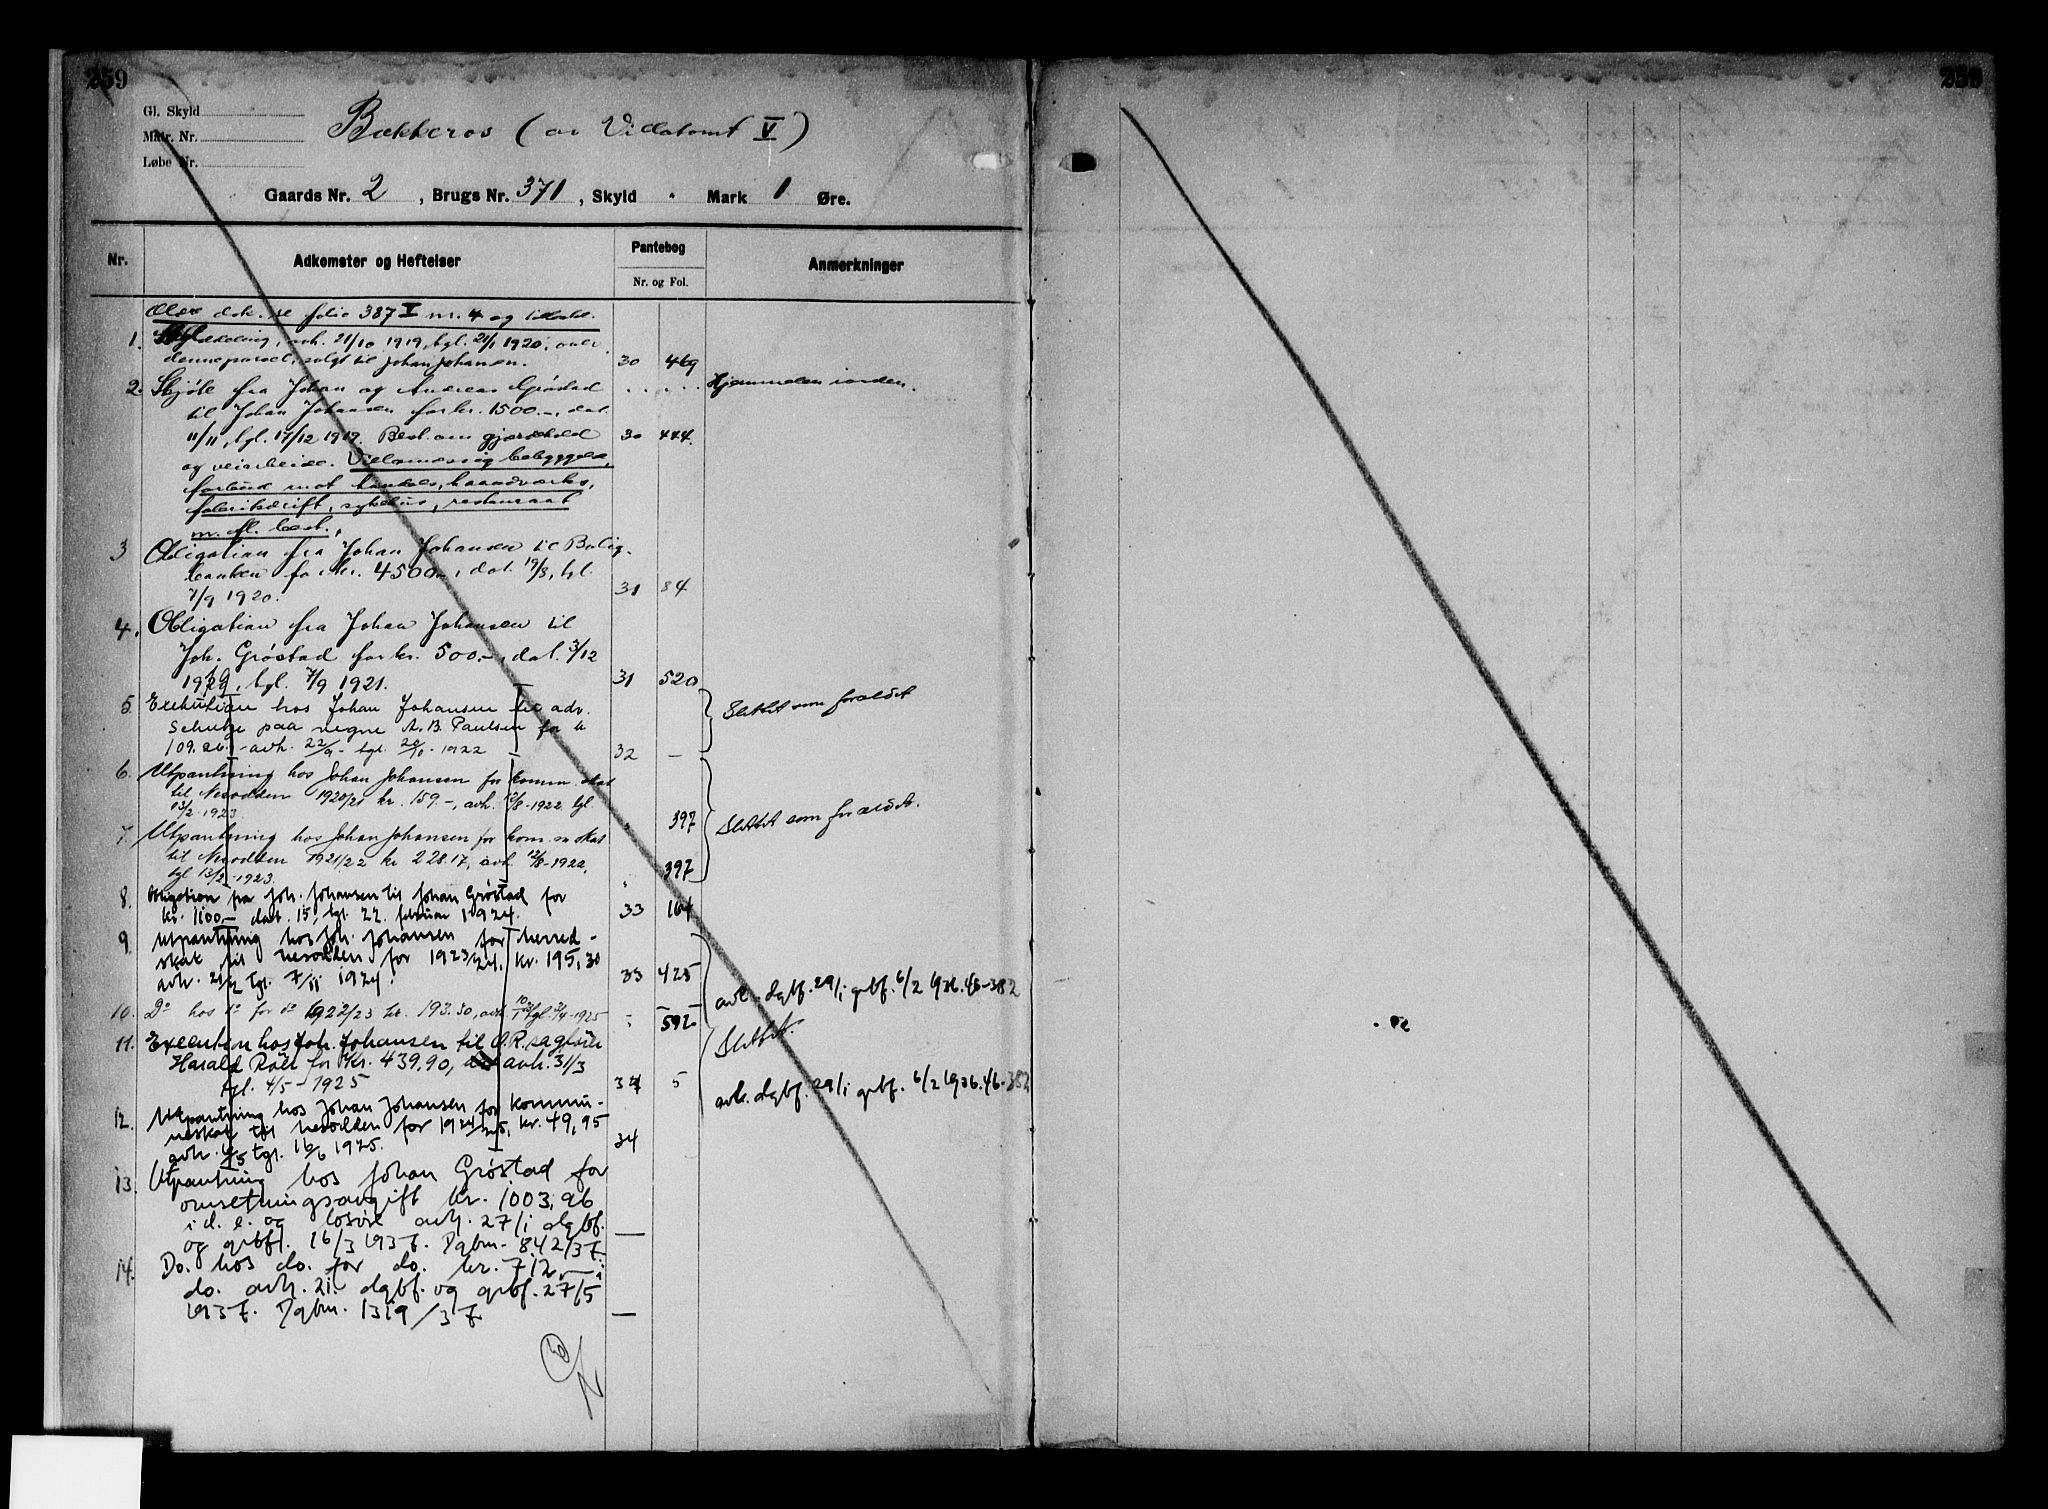 259
Gl. Skyld
Matr. Nr.
Løbe Nr.
Bakkeros (av Villatomt V)
Gaards Nr. 2, Brugs Nr. 371, Skyld " Mark 1 Øre.
Nr. Adkomster og Heftelser Pantebog Nr. og Fol. Anmerkninger
Eldre dok. se folio 387 I nr. 4 og
1. Skylddeling, avh. 21/10 1919, tgl. 21/1 1920, over
denne parsel, solgt til Johan Johansen. 30 469
2. Skjøte fra Johan og Andreas Grøstad . . . . . Hjemmelen i orden.
til Johan Johansen for kr. 1500.-, dat.
11/11, tgl. 17/12 1919. Best. om gjærdehold 30 444.
og veiarbeide. Villamæssig bebyggelse,
forbud mot handels, haandværks,
fabrikdrift, sykehus, restaurant
m. fl. best.
3 Obligation fra Johan Johansen til Bolig-
banken for kr. 4500.-, dat. 19/8, tgl.
7/9 1920. 31 84
4. Obligation fra Johan Johansen til
Joh. Grøstad for kr. 500.-, dat. 3/12
1919, tgl. 7/9 1921. 31 520
5. Exekution hos Johan Johansen til adv.
Schulze paa vegne A. B. Paulsen for kr
109.26.- avh. 22/9 - tgl. 20/10 - 1922 32 — Slettet som forældet
6. Utpantning hos Johan Johansen for komm. skat
til Nesodden 1920/21 kr. 159.-, avh. 12/8-1922 tgl
13/2-1923 " 397 Slettet som forældet.
7. Utpantning hos Johan Johansen for kom. skat
til Nesodden 1921/22 kr 228.17, avh. 12/8-1922,
tgl 13/2-1923. " 397
8. Obligation fra Joh. Johansen til Johan Grøstad for
kr. 1100,- dat. 15, tgl. 22. februar 1924. 33 164
9. Utpantning hos Joh. Johansen for herred-
skat til Nesodden for 1923/24, kr. 195,30
avh. tgl. 7/11 1924. 33 425 avl. dgbf. 29/1 grbf. 6/2 1936.46-382
10. Do hos do for do 1922/23 kr. 193.30, avh. tgl. 3/4-1925 " 592
11. Execution hos Joh. Johansen til O.R.sagfører Slettet.
Harald Röll for kr. 439,90, avh. 31/3
tgl. 4/5-1925 34 5 avl. dgbf. 29/1 grbf. 6/2 1936.46-382
12. Utpantning hos Johan Johansen for kommu-
neskat til Nesodden for 1924/25, kr. 49,95
avh. tgl. 16/6 1925. 34
13. Utpantning hos Johan Grøstad for
omsetningsavgift kr. 1003,96
i d. e. og løsøre avh. 27/1 dgbf.
og grbf. 16/3 1937. Dgbnr. 842/37. —
14. Do. hos do. for do. kr. 712,— i
do. avh. 21. dgbf. og grbf. 27/5
1937. Dgbnr. 1319/37 —